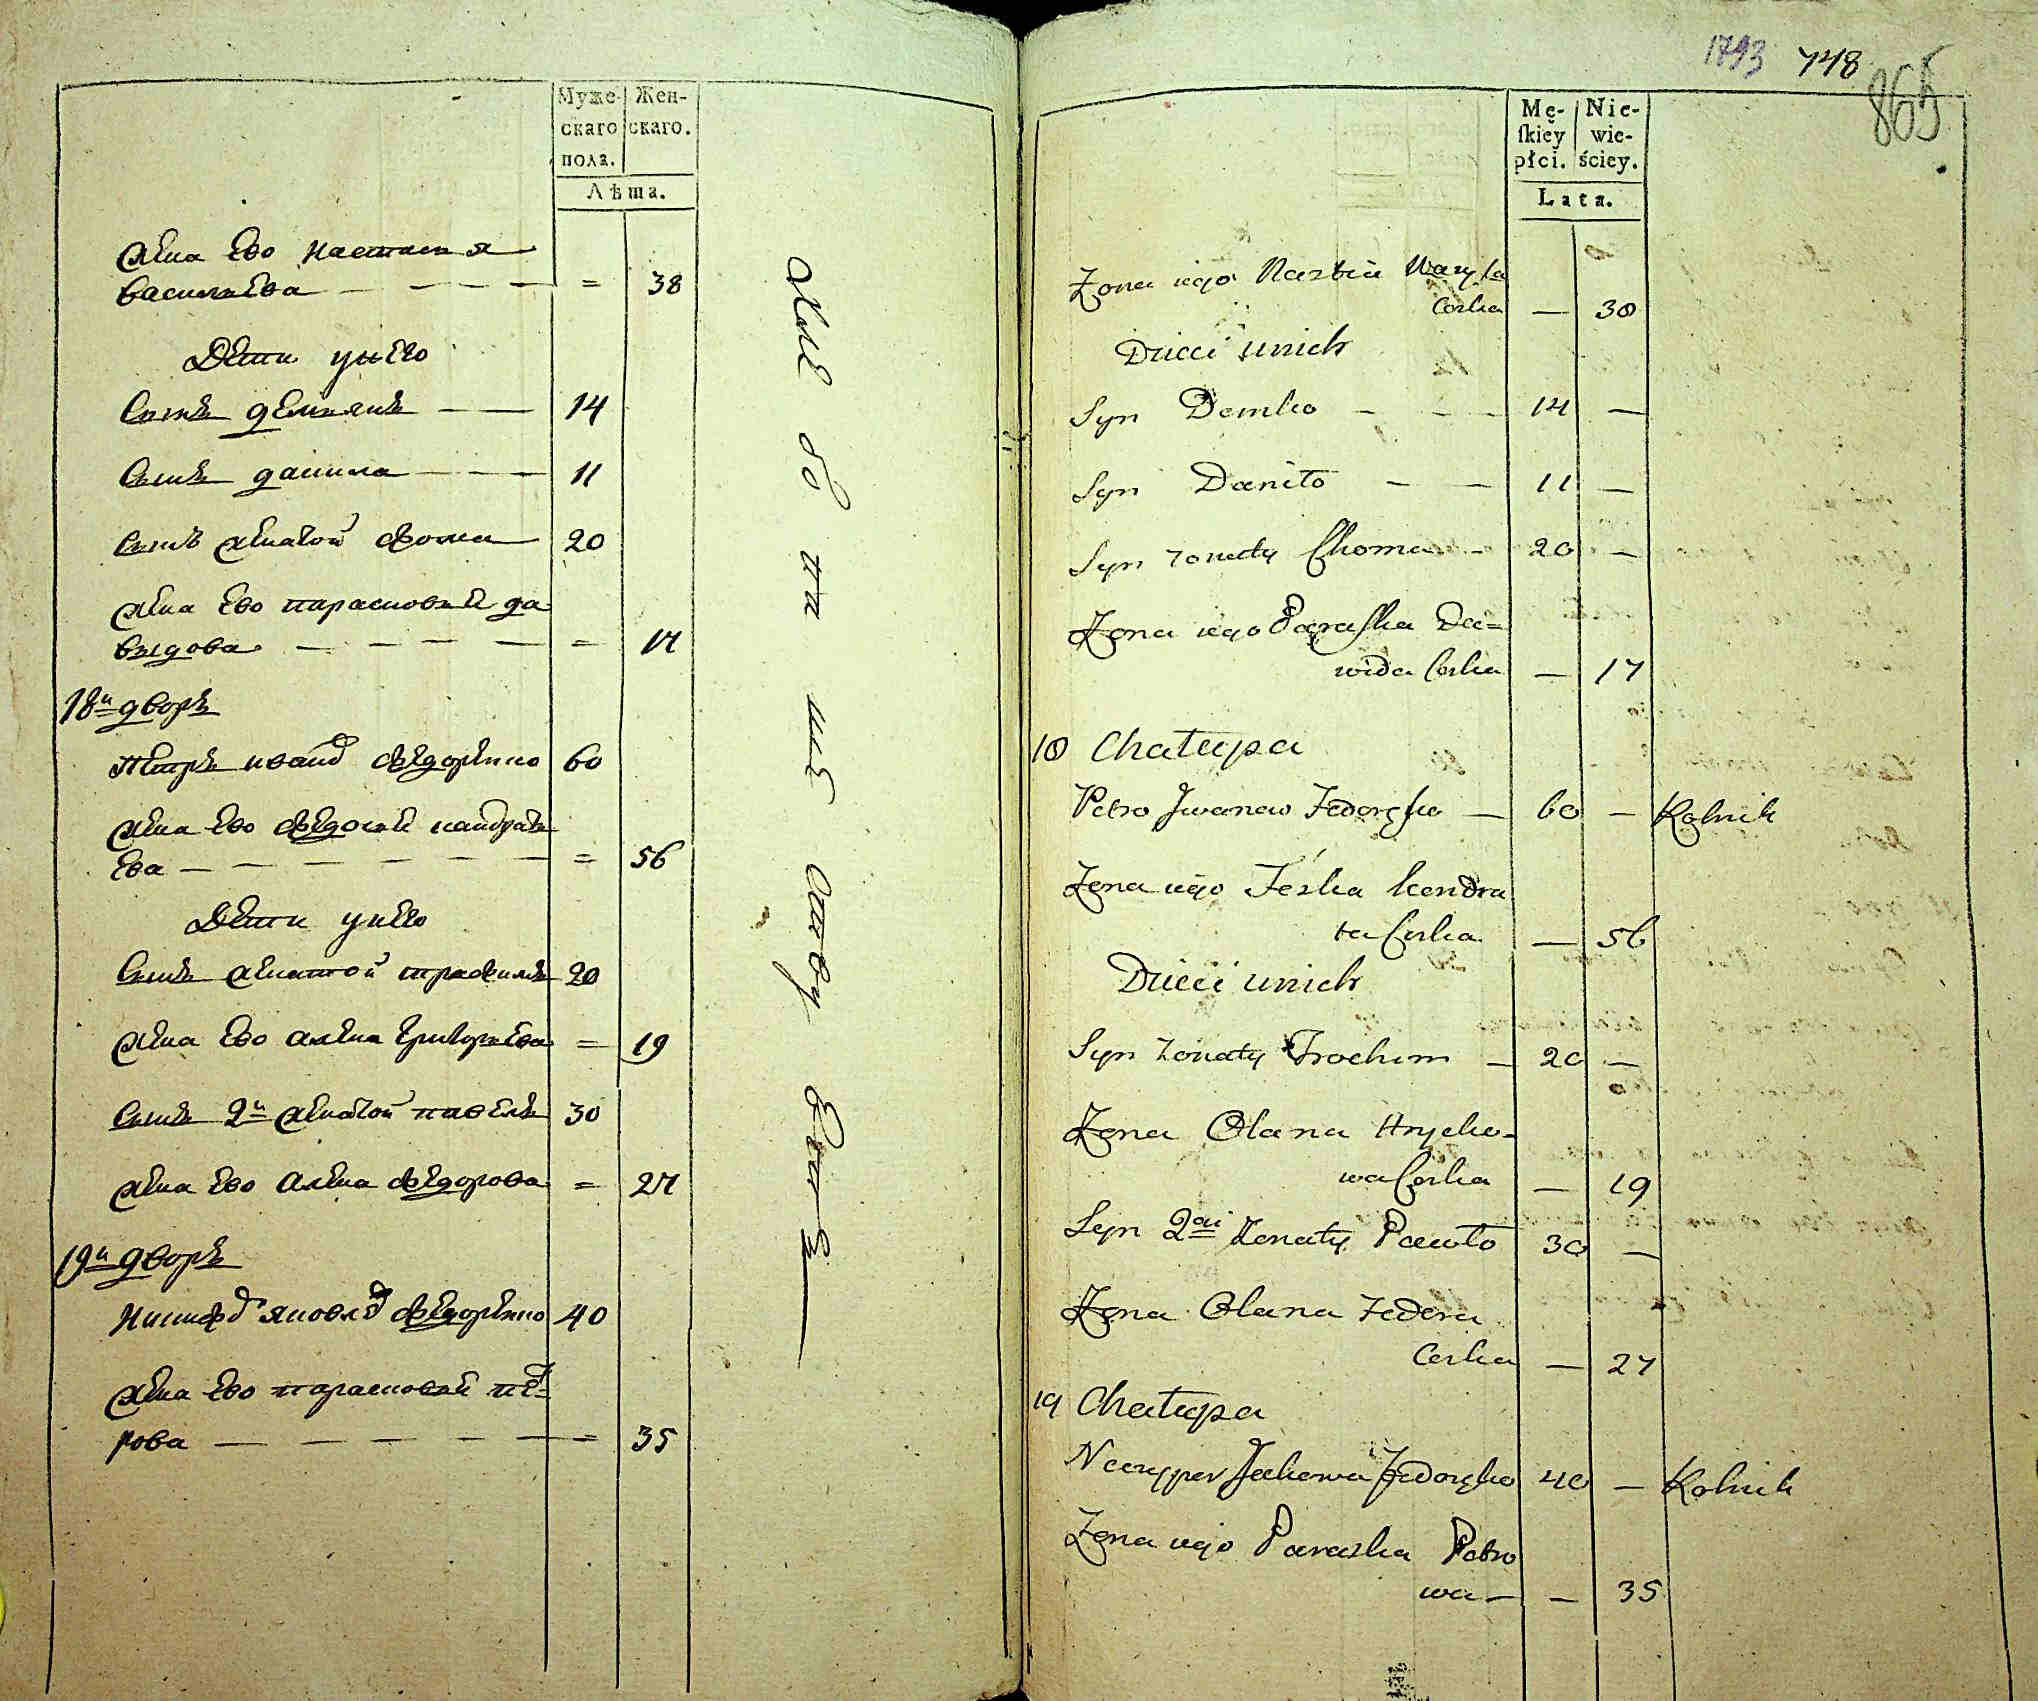 Муже-
скаго
пола.
Жен-
скаго.
Лѣта.
Жена Ево Настасия
Васильева — — — = 38
Дети у нево
Сынъ демьянъ — — 14
Сынъ данила — — 11
Сынъ женатой Фома — 20
Жена Ево парасковья да
выдова — — — — = 17
18й дворъ
Петръ иванов Федоренко 60
Жена Ево Федосья кондрать
Ева — — — — — = 56
Дети у нево
Сынъ женатой трофимъ 20
Жена Ево алена григорьева = 19
Сынъ 2й женатой павелъ 30
Жена Ево алена Федорова = 27
19й дворъ
Ничипор яковлев Федоренко 40
Жена Ево парасковья пет-
рова — — — — — = 35
1793 748
865
Mę-
skiey
płci.
Nie-
wie-
ściey.
Lata.
Żona iego Nastia Wasyla
Corka — 38
Dzieci unich
Syn Demko — — — 14 —
Syn Daniło — — 11 —
Syn zonaty Choma — 20 —
Zona iego Paraska Da=
wida Corka — 17
18 Chałupa
Petro Jwanow Fedoręko — 60 — Rolnik
Zona iego Feska Kondra
ta Corka — 56
Dzieci unich
Syn zonaty Trochim — 20 —
Zona Olana Hryćko-
wa Corka — 19
Syn 2gi Zonaty Pawło 30 —
Zona Olana Fedora
Corka — 27
19 Chałupa
Neczyper Jakowa Fedoręko 40 — Rolnik
Zona iego Paraska Petro
wa — — 35